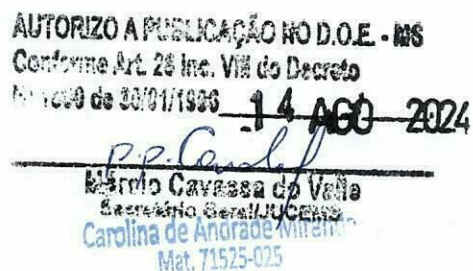 AUTORIZO A PUBLICAÇÃO NO D.O.E. - MS
Conforme Art. 28 Inc. VIII do Decreto
Nº 1800 de 30/01/1996 14 AGO 2024
p.p.
Cavassa do Valle
Secretário Geral/JUCEMS
Carolina de Andrade Miranda
Mat. 71525-025